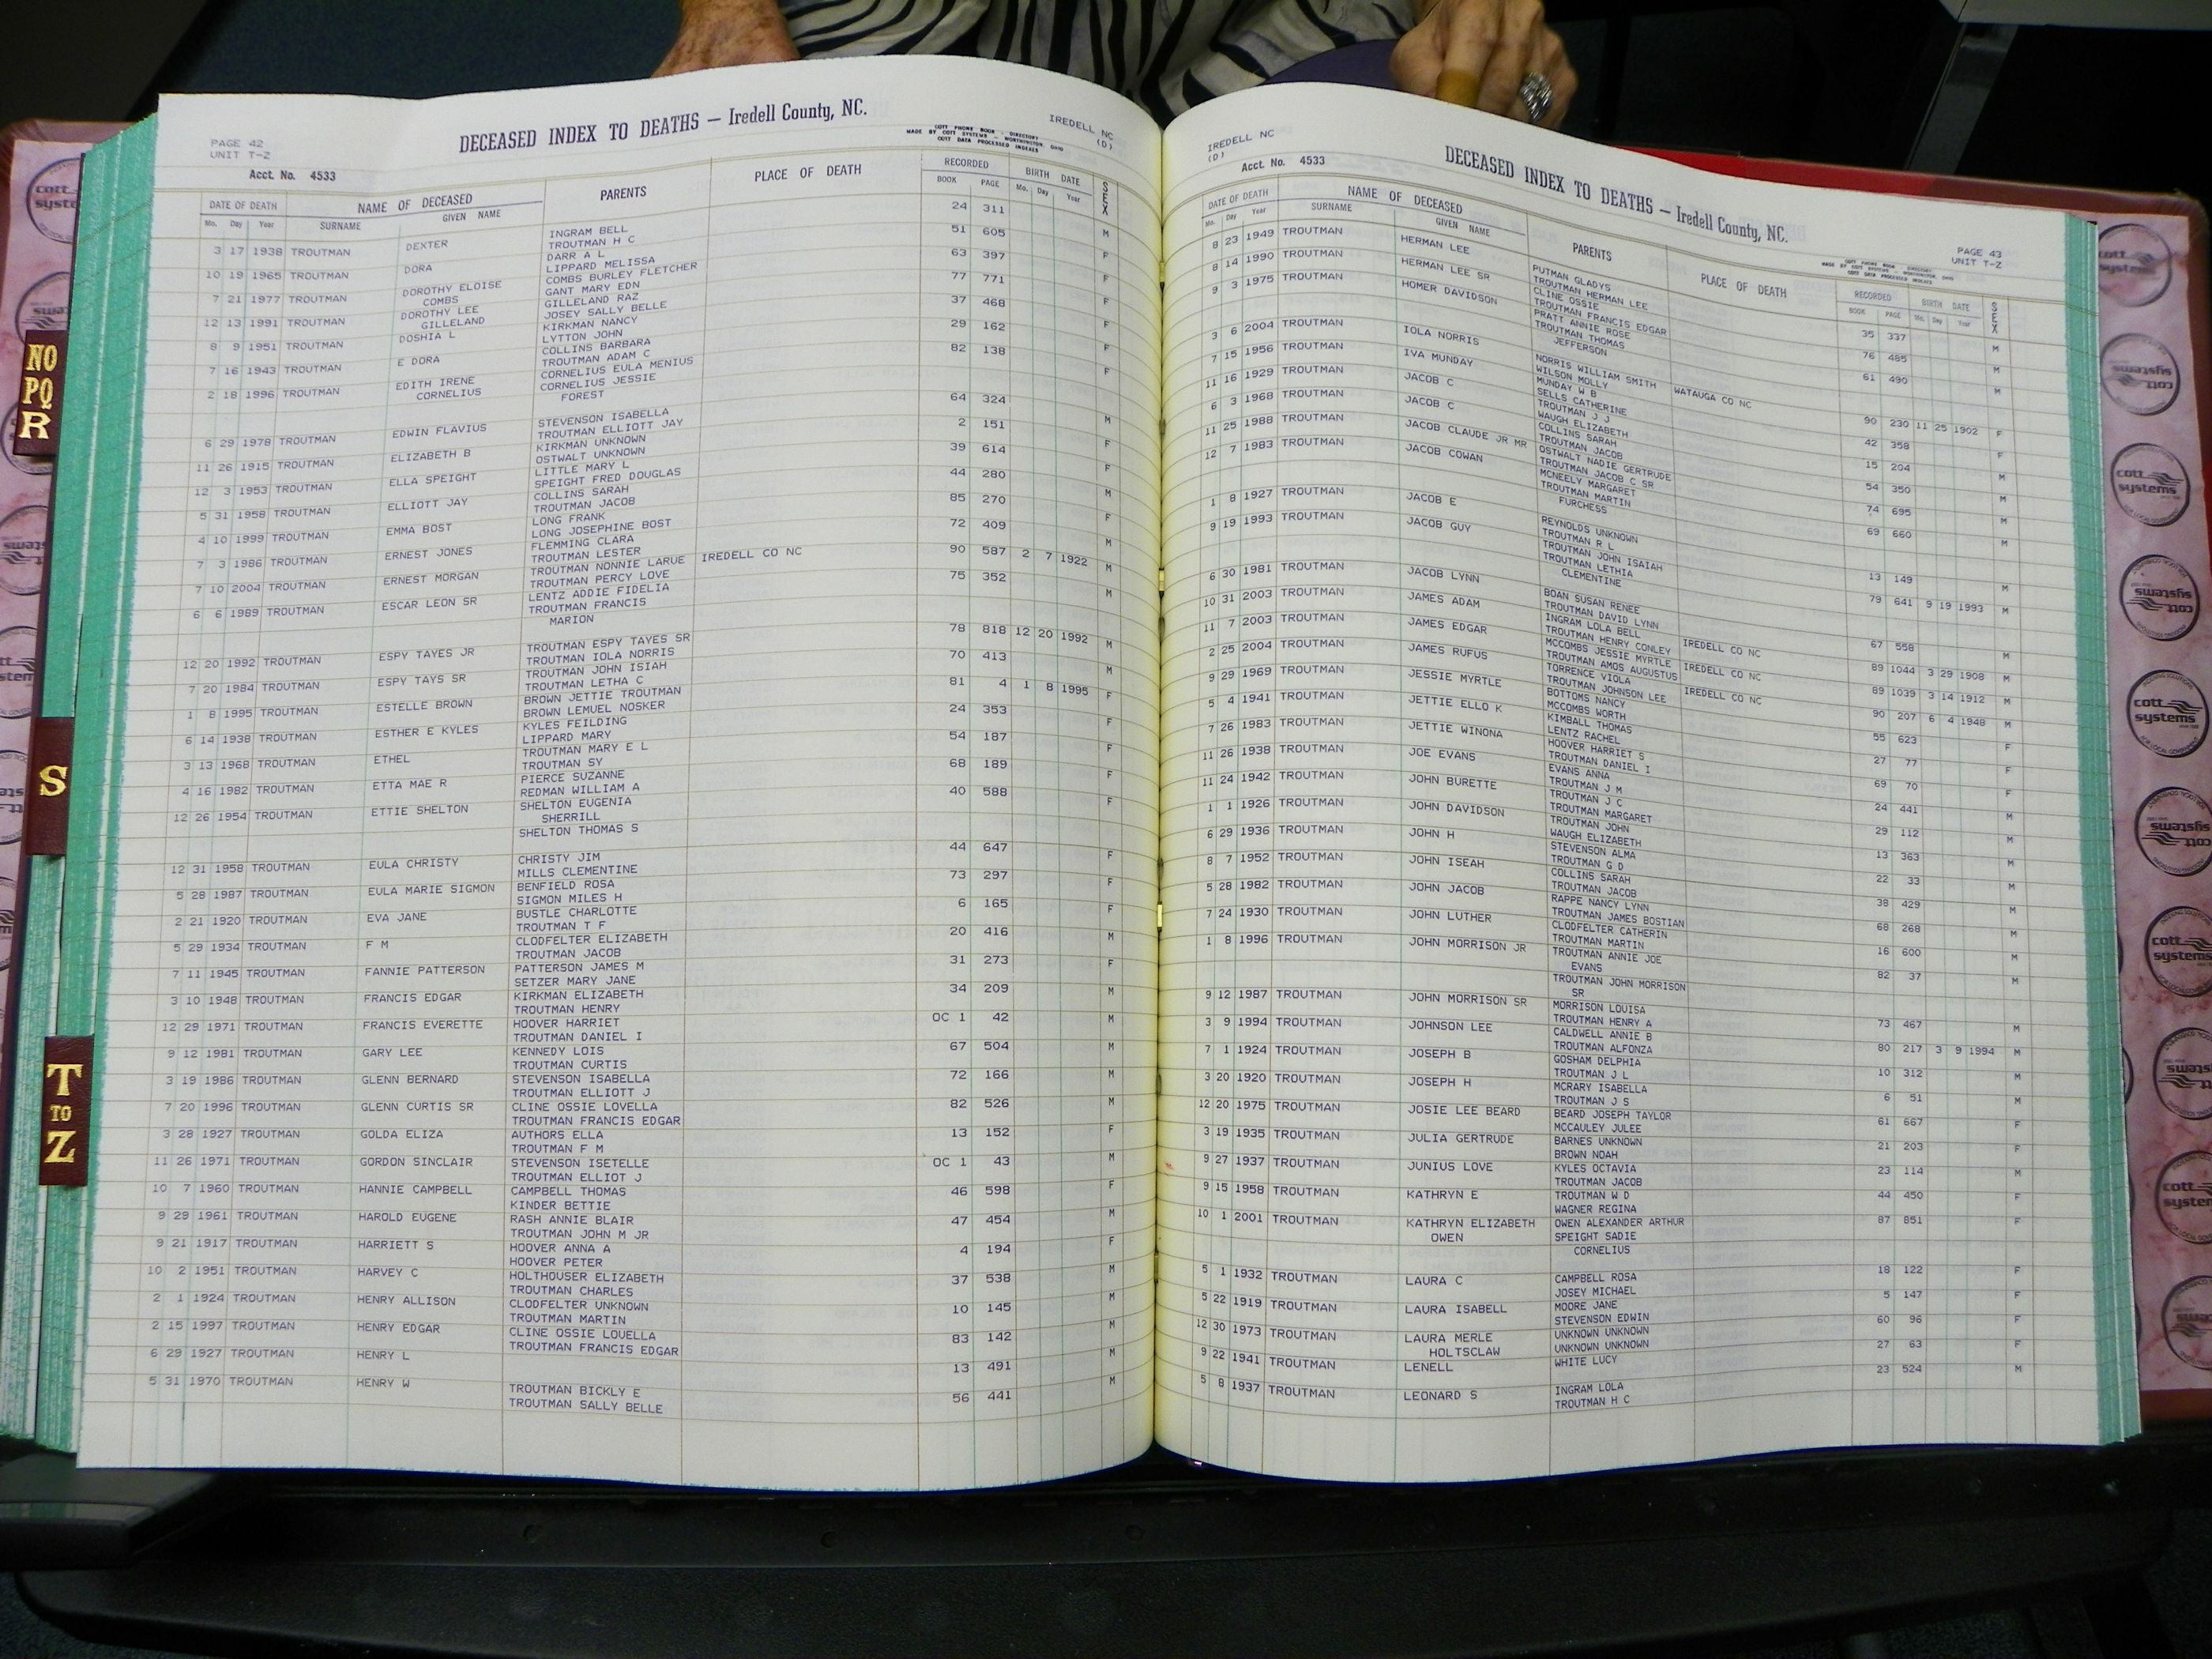 NO
PQ
R
S
T
TO
Z
cott
systems
PAGE 42
UNIT T-Z
DECEASED INDEX TO DEATHS — Iredell County, NC.
COTT PHONE BOOK - DIRECTORY
MADE BY COTT SYSTEMS — WORTHINGTON, OHIO
COTT DATA PROCESSED INDEXES
IREDELL NC
(D)
Acct. No. 4533
DATE OF DEATH NAME OF DECEASED PARENTS PLACE OF DEATH RECORDED BIRTH DATE SEX
Mo. Day Year SURNAME GIVEN NAME BOOK PAGE Mo. Day Year
3 17 1938 TROUTMAN DEXTER INGRAM BELL 24 311 M
TROUTMAN H C
10 19 1965 TROUTMAN DORA DARR A L 51 605 F
LIPPARD MELISSA
7 21 1977 TROUTMAN DOROTHY ELOISE COMBS BURLEY FLETCHER 63 397 F
COMBS GANT MARY EDN
12 13 1991 TROUTMAN DOROTHY LEE GILLELAND RAZ 77 771 F
GILLELAND JOSEY SALLY BELLE
8 9 1951 TROUTMAN DOSHIA L KIRKMAN NANCY 37 468 F
LYTTON JOHN
7 16 1943 TROUTMAN E DORA COLLINS BARBARA 29 162 F
TROUTMAN ADAM C
2 18 1996 TROUTMAN EDITH IRENE CORNELIUS EULA MENIUS 82 138 F
CORNELIUS CORNELIUS JESSIE
FOREST
6 29 1978 TROUTMAN EDWIN FLAVIUS STEVENSON ISABELLA 64 324 M
TROUTMAN ELLIOTT JAY
11 26 1915 TROUTMAN ELIZABETH B KIRKMAN UNKNOWN 2 151
OSTWALT UNKNOWN
12 3 1953 TROUTMAN ELLA SPEIGHT LITTLE MARY L 39 614 F
SPEIGHT FRED DOUGLAS
5 31 1958 TROUTMAN ELLIOTT JAY COLLINS SARAH 44 280 M
TROUTMAN JACOB
4 10 1999 TROUTMAN EMMA BOST LONG FRANK 85 270 F
LONG JOSEPHINE BOST
7 3 1986 TROUTMAN ERNEST JONES FLEMMING CLARA 72 409 M
TROUTMAN LESTER
7 10 2004 TROUTMAN ERNEST MORGAN TROUTMAN NONNIE LARUE IREDELL CO NC 90 587 2 7 1922 M
TROUTMAN PERCY LOVE
6 6 1989 TROUTMAN ESCAR LEON SR LENTZ ADDIE FIDELIA 75 352 M
TROUTMAN FRANCIS
MARION
12 20 1992 TROUTMAN ESPY TAYES JR TROUTMAN ESPY TAYES SR 78 818 12 20 1992 M
TROUTMAN IOLA NORRIS
7 20 1984 TROUTMAN ESPY TAYS SR TROUTMAN JOHN ISIAH 70 413 M
TROUTMAN LETHA C
1 8 1995 TROUTMAN ESTELLE BROWN BROWN JETTIE TROUTMAN 81 4 1 8 1995 F
BROWN LEMUEL NOSKER
6 14 1938 TROUTMAN ESTHER E KYLES KYLES FEILDING 24 353 F
LIPPARD MARY
3 13 1968 TROUTMAN ETHEL TROUTMAN MARY E L 54 187 F
TROUTMAN SY
4 16 1982 TROUTMAN ETTA MAE R PIERCE SUZANNE 68 189 F
REDMAN WILLIAM A
12 26 1954 TROUTMAN ETTIE SHELTON SHELTON EUGENIA 40 588 F
SHERRILL
SHELTON THOMAS S
12 31 1958 TROUTMAN EULA CHRISTY CHRISTY JIM 44 647 F
MILLS CLEMENTINE
5 28 1987 TROUTMAN EULA MARIE SIGMON BENFIELD ROSA 73 297 F
SIGMON MILES H
2 21 1920 TROUTMAN EVA JANE BUSTLE CHARLOTTE 6 165 F
TROUTMAN T F
5 29 1934 TROUTMAN F M CLODFELTER ELIZABETH 20 416 M
TROUTMAN JACOB
7 11 1945 TROUTMAN FANNIE PATTERSON PATTERSON JAMES M 31 273 F
SETZER MARY JANE
3 10 1948 TROUTMAN FRANCIS EDGAR KIRKMAN ELIZABETH 34 209 M
TROUTMAN HENRY
12 29 1971 TROUTMAN FRANCIS EVERETTE HOOVER HARRIET OC 1 42 M
TROUTMAN DANIEL I
9 12 1981 TROUTMAN GARY LEE KENNEDY LOIS 67 504 M
TROUTMAN CURTIS
3 19 1986 TROUTMAN GLENN BERNARD STEVENSON ISABELLA 72 166 M
TROUTMAN ELLIOTT J
7 20 1996 TROUTMAN GLENN CURTIS SR CLINE OSSIE LOVELLA 82 526 M
TROUTMAN FRANCIS EDGAR
3 28 1927 TROUTMAN GOLDA ELIZA AUTHORS ELLA 13 152 F
TROUTMAN F M
11 26 1971 TROUTMAN GORDON SINCLAIR STEVENSON ISETELLE OC 1 43 M
TROUTMAN ELLIOT J
10 7 1960 TROUTMAN HANNIE CAMPBELL CAMPBELL THOMAS 46 598 F
KINDER BETTIE
9 29 1961 TROUTMAN HAROLD EUGENE RASH ANNIE BLAIR 47 454 M
TROUTMAN JOHN M JR
9 21 1917 TROUTMAN HARRIETT S HOOVER ANNA A 4 194 F
HOOVER PETER
10 2 1951 TROUTMAN HARVEY C HOLTHOUSER ELIZABETH 37 538 M
TROUTMAN CHARLES
2 1 1924 TROUTMAN HENRY ALLISON CLODFELTER UNKNOWN 10 145 M
TROUTMAN MARTIN
2 15 1997 TROUTMAN HENRY EDGAR CLINE OSSIE LOUELLA 83 142 M
TROUTMAN FRANCIS EDGAR
6 29 1927 TROUTMAN HENRY L 13 491 M
5 31 1970 TROUTMAN HENRY W TROUTMAN BICKLY E 56 441 M
TROUTMAN SALLY BELLE
IREDELL NC
(D)
Acct. No. 4533
DECEASED INDEX TO DEATHS — Iredell County, NC.
PAGE 43
UNIT T-Z
DATE OF DEATH NAME OF DECEASED PARENTS PLACE OF DEATH RECORDED BIRTH DATE SEX
Mo. Day Year SURNAME GIVEN NAME BOOK PAGE Mo. Day Year
8 23 1949 TROUTMAN HERMAN LEE PUTMAN GLADYS 35 337 M
TROUTMAN HERMAN LEE
8 14 1990 TROUTMAN HERMAN LEE SR CLINE OSSIE 76 485 M
TROUTMAN FRANCIS EDGAR
9 3 1975 TROUTMAN HOMER DAVIDSON PRATT ANNIE ROSE 61 490 M
TROUTMAN THOMAS
JEFFERSON
3 6 2004 TROUTMAN IOLA NORRIS NORRIS WILLIAM SMITH WATAUGA CO NC 90 230 11 25 1902 F
WILSON MOLLY
7 15 1956 TROUTMAN IVA MUNDAY MUNDAY W B 42 358 F
SELLS CATHERINE
11 16 1929 TROUTMAN JACOB C TROUTMAN J J 15 204 M
WAUGH ELIZABETH
6 3 1968 TROUTMAN JACOB C COLLINS SARAH 54 350 M
TROUTMAN JACOB
11 25 1988 TROUTMAN JACOB CLAUDE JR MR OSTWALT NADIE GERTRUDE 74 695 M
TROUTMAN JACOB C SR
12 7 1983 TROUTMAN JACOB COWAN MCNEELY MARGARET 69 660 M
TROUTMAN MARTIN
FURCHESS
1 8 1927 TROUTMAN JACOB E REYNOLDS UNKNOWN 13 149 M
TROUTMAN R L
9 19 1993 TROUTMAN JACOB GUY TROUTMAN JOHN ISAIAH 79 641 9 19 1993 M
TROUTMAN LETHIA
CLEMENTINE
6 30 1981 TROUTMAN JACOB LYNN BOAN SUSAN RENEE 67 558 M
TROUTMAN DAVID LYNN
10 31 2003 TROUTMAN JAMES ADAM INGRAM LOLA BELL IREDELL CO NC 89 1044 3 29 1908 M
TROUTMAN HENRY CONLEY
11 7 2003 TROUTMAN JAMES EDGAR MCCOMBS JESSIE MYRTLE IREDELL CO NC 89 1039 3 14 1912 M
TROUTMAN AMOS AUGUSTUS
2 25 2004 TROUTMAN JAMES RUFUS TORRENCE VIOLA IREDELL CO NC 90 207 6 4 1948 M
TROUTMAN JOHNSON LEE
9 29 1969 TROUTMAN JESSIE MYRTLE BOTTOMS NANCY 55 623 F
MCCOMBS WORTH
5 4 1941 TROUTMAN JETTIE ELLO K KIMBALL THOMAS 27 77 F
LENTZ RACHEL
7 26 1983 TROUTMAN JETTIE WINONA HOOVER HARRIET S 69 70 F
TROUTMAN DANIEL I
11 26 1938 TROUTMAN JOE EVANS EVANS ANNA 24 441 M
TROUTMAN J M
11 24 1942 TROUTMAN JOHN BURETTE TROUTMAN J C 29 112 M
TROUTMAN MARGARET
1 1 1926 TROUTMAN JOHN DAVIDSON TROUTMAN JOHN 13 363 M
WAUGH ELIZABETH
6 29 1936 TROUTMAN JOHN H STEVENSON ALMA 22 33 M
TROUTMAN G D
8 7 1952 TROUTMAN JOHN ISEAH COLLINS SARAH 38 429 M
TROUTMAN JACOB
5 28 1982 TROUTMAN JOHN JACOB RAPPE NANCY LYNN 68 268 M
TROUTMAN JAMES BOSTIAN
7 24 1930 TROUTMAN JOHN LUTHER CLODFELTER CATHERIN 16 600 M
TROUTMAN MARTIN
1 8 1996 TROUTMAN JOHN MORRISON JR TROUTMAN ANNIE JOE 82 37 M
EVANS
TROUTMAN JOHN MORRISON
SR
9 12 1987 TROUTMAN JOHN MORRISON SR MORRISON LOUISA 73 467 M
TROUTMAN HENRY A
3 9 1994 TROUTMAN JOHNSON LEE CALDWELL ANNIE B 80 217 3 9 1994 M
TROUTMAN ALFONZA
7 1 1924 TROUTMAN JOSEPH B GOSHAM DELPHIA 10 312 M
TROUTMAN J L
3 20 1920 TROUTMAN JOSEPH H MCRARY ISABELLA 6 51 M
TROUTMAN J S
12 20 1975 TROUTMAN JOSIE LEE BEARD BEARD JOSEPH TAYLOR 61 667 F
MCCAULEY JULEE
3 19 1935 TROUTMAN JULIA GERTRUDE BARNES UNKNOWN 21 203 F
BROWN NOAH
9 27 1937 TROUTMAN JUNIUS LOVE KYLES OCTAVIA 23 114 M
TROUTMAN JACOB
9 15 1958 TROUTMAN KATHRYN E TROUTMAN W D 44 450 F
WAGNER REGINA
10 1 2001 TROUTMAN KATHRYN ELIZABETH OWEN ALEXANDER ARTHUR 87 851 F
OWEN SPEIGHT SADIE
CORNELIUS
5 1 1932 TROUTMAN LAURA C CAMPBELL ROSA 18 122 F
JOSEY MICHAEL
5 22 1919 TROUTMAN LAURA ISABELL MOORE JANE 5 147 F
STEVENSON EDWIN
12 30 1973 TROUTMAN LAURA MERLE UNKNOWN UNKNOWN 60 96 F
HOLTSCLAW UNKNOWN UNKNOWN
9 22 1941 TROUTMAN LENELL WHITE LUCY 27 63 F
5 8 1937 TROUTMAN LEONARD S INGRAM LOLA 23 524 M
TROUTMAN H C
cott
systems